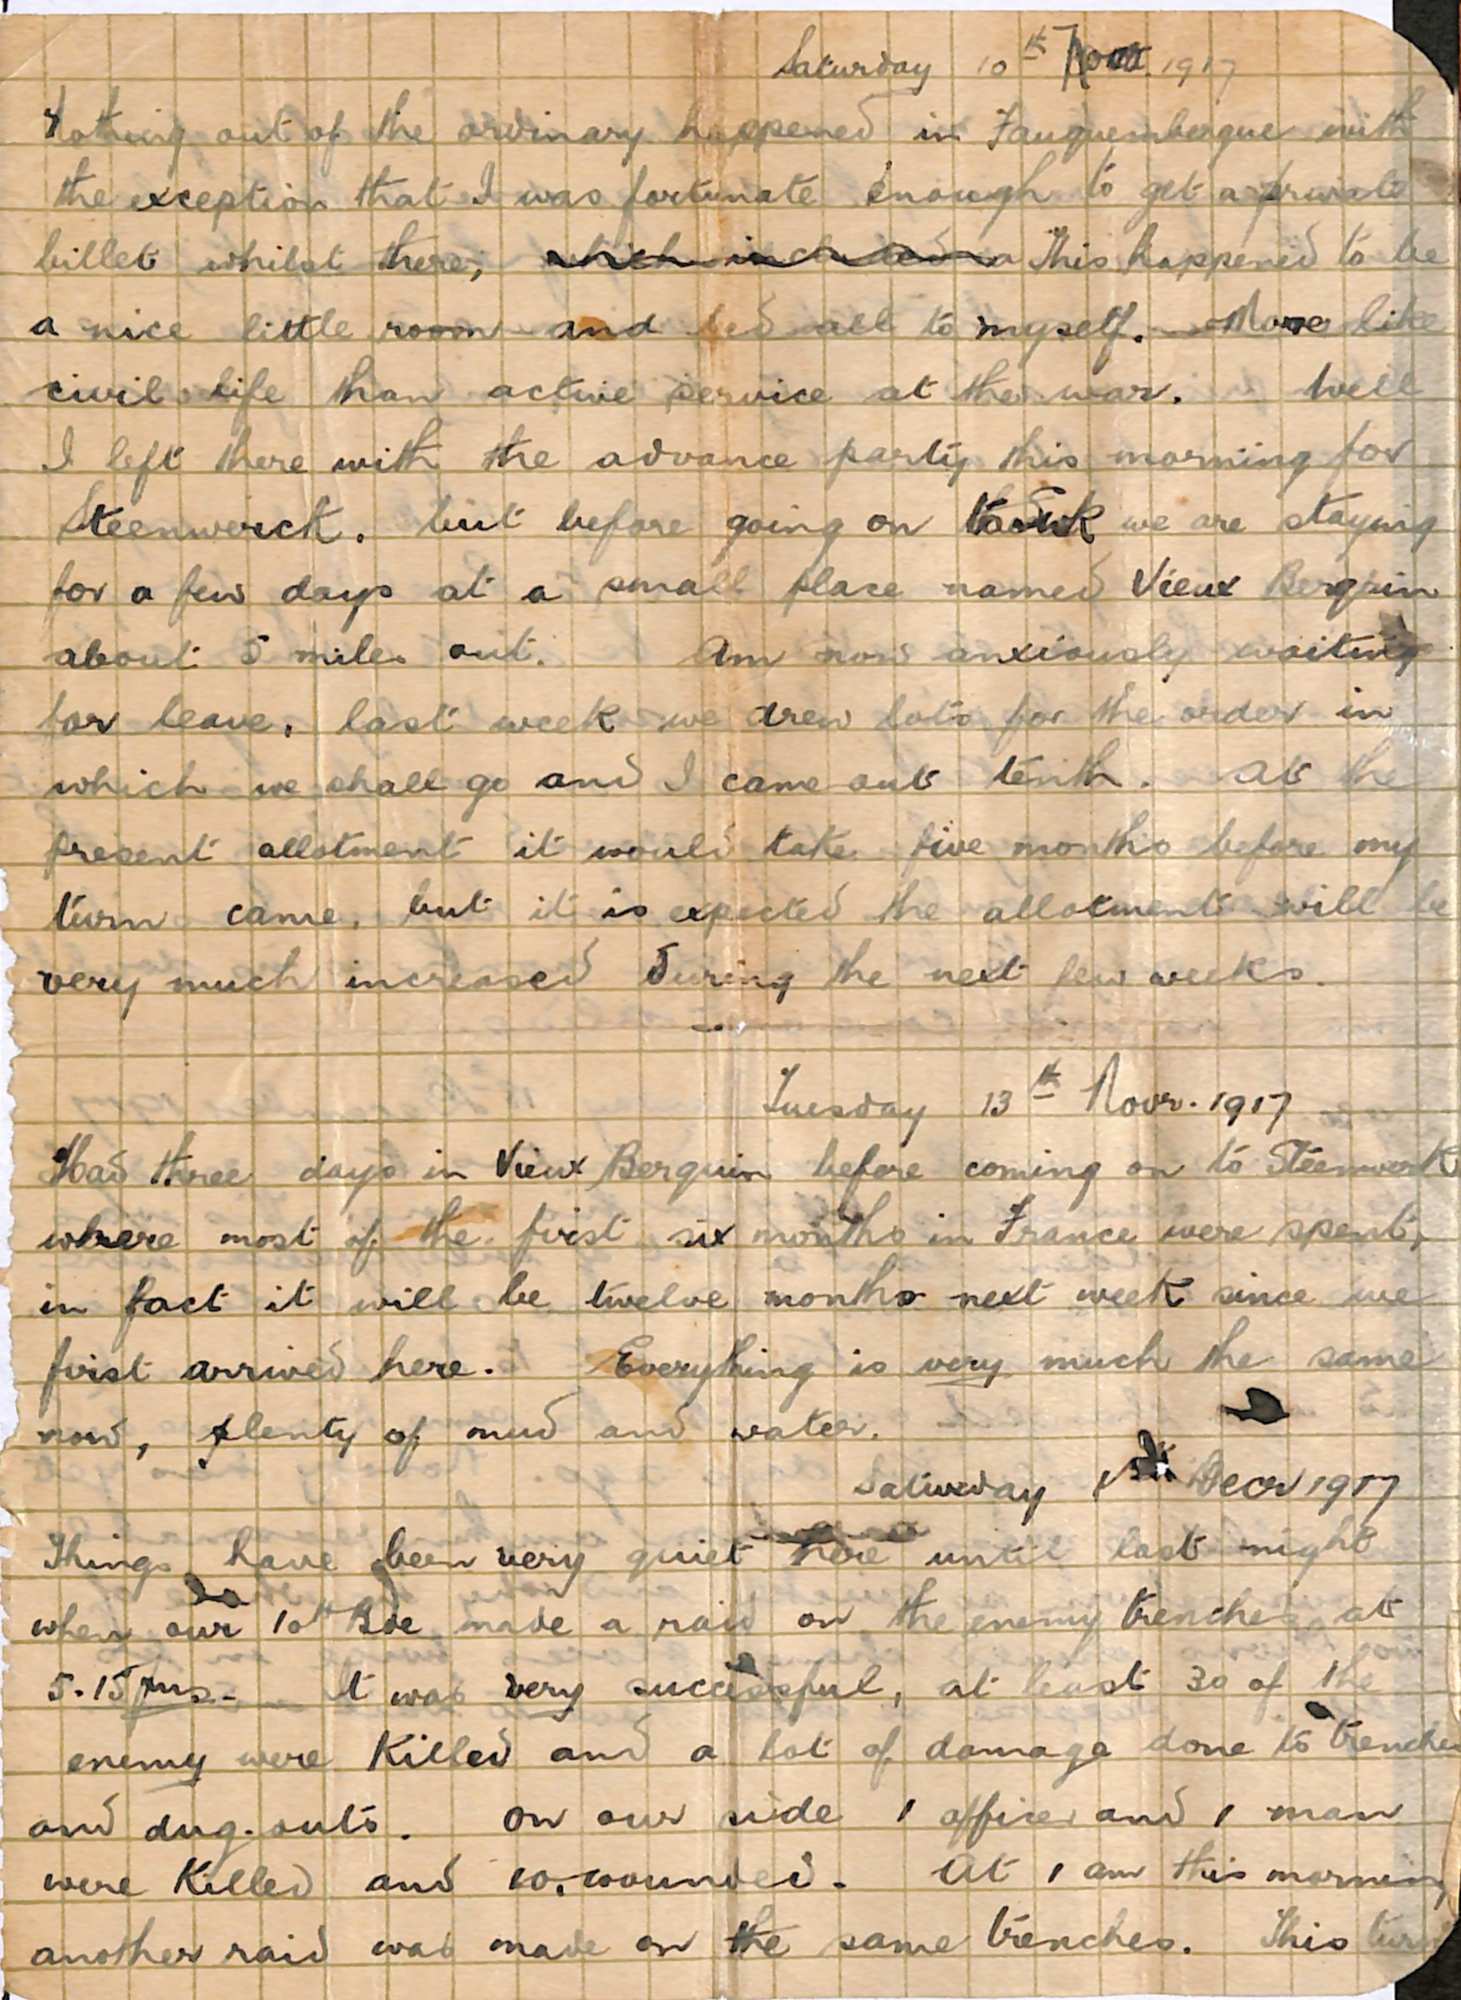 Saturday 10th Novr 1917
Nothing out of the ordinary happened in Fauquembergue with
the exception that I was fortunate enough to get a private
billet whilst there, which included a This happened to be
a nice little room and bed all to myself. More like
civil life than active service at the war. Well
I left there with the advance party this morning for
Steenwerck. but before going on we are staying
for a few days at a small place named Vieux Berquin
about 5 miles out. Am now anxiously waiting
for leave, last week we drew lots for the order in
which we shall go and I came out tenth. At the
present allotment it would take five months before my
turn came, but it is expected the allotment will be
very much increased during the next few weeks.
Tuesday 13th Novr. 1917
Had three days in Vieux Berquin before coming on to Steenwerck
where most of the first six months in France were spent,
in fact it will be twelve months next week since we
first arrived here. Everything is very much the same
now, plenty of mud and water.
Saturday Decr 1917
Things have been very quiet here until last night
when our 10th Bde made a raid on the enemy trenches at
5.15 pm. It was very successful, at least 30 of the
enemy were Killed and a lot of damage done to trenches
and dug-outs. On our side 1 officer and 1 man
were Killed and 10. wounded. At 1 am this morning
another raid was made on the same trenches. This turn